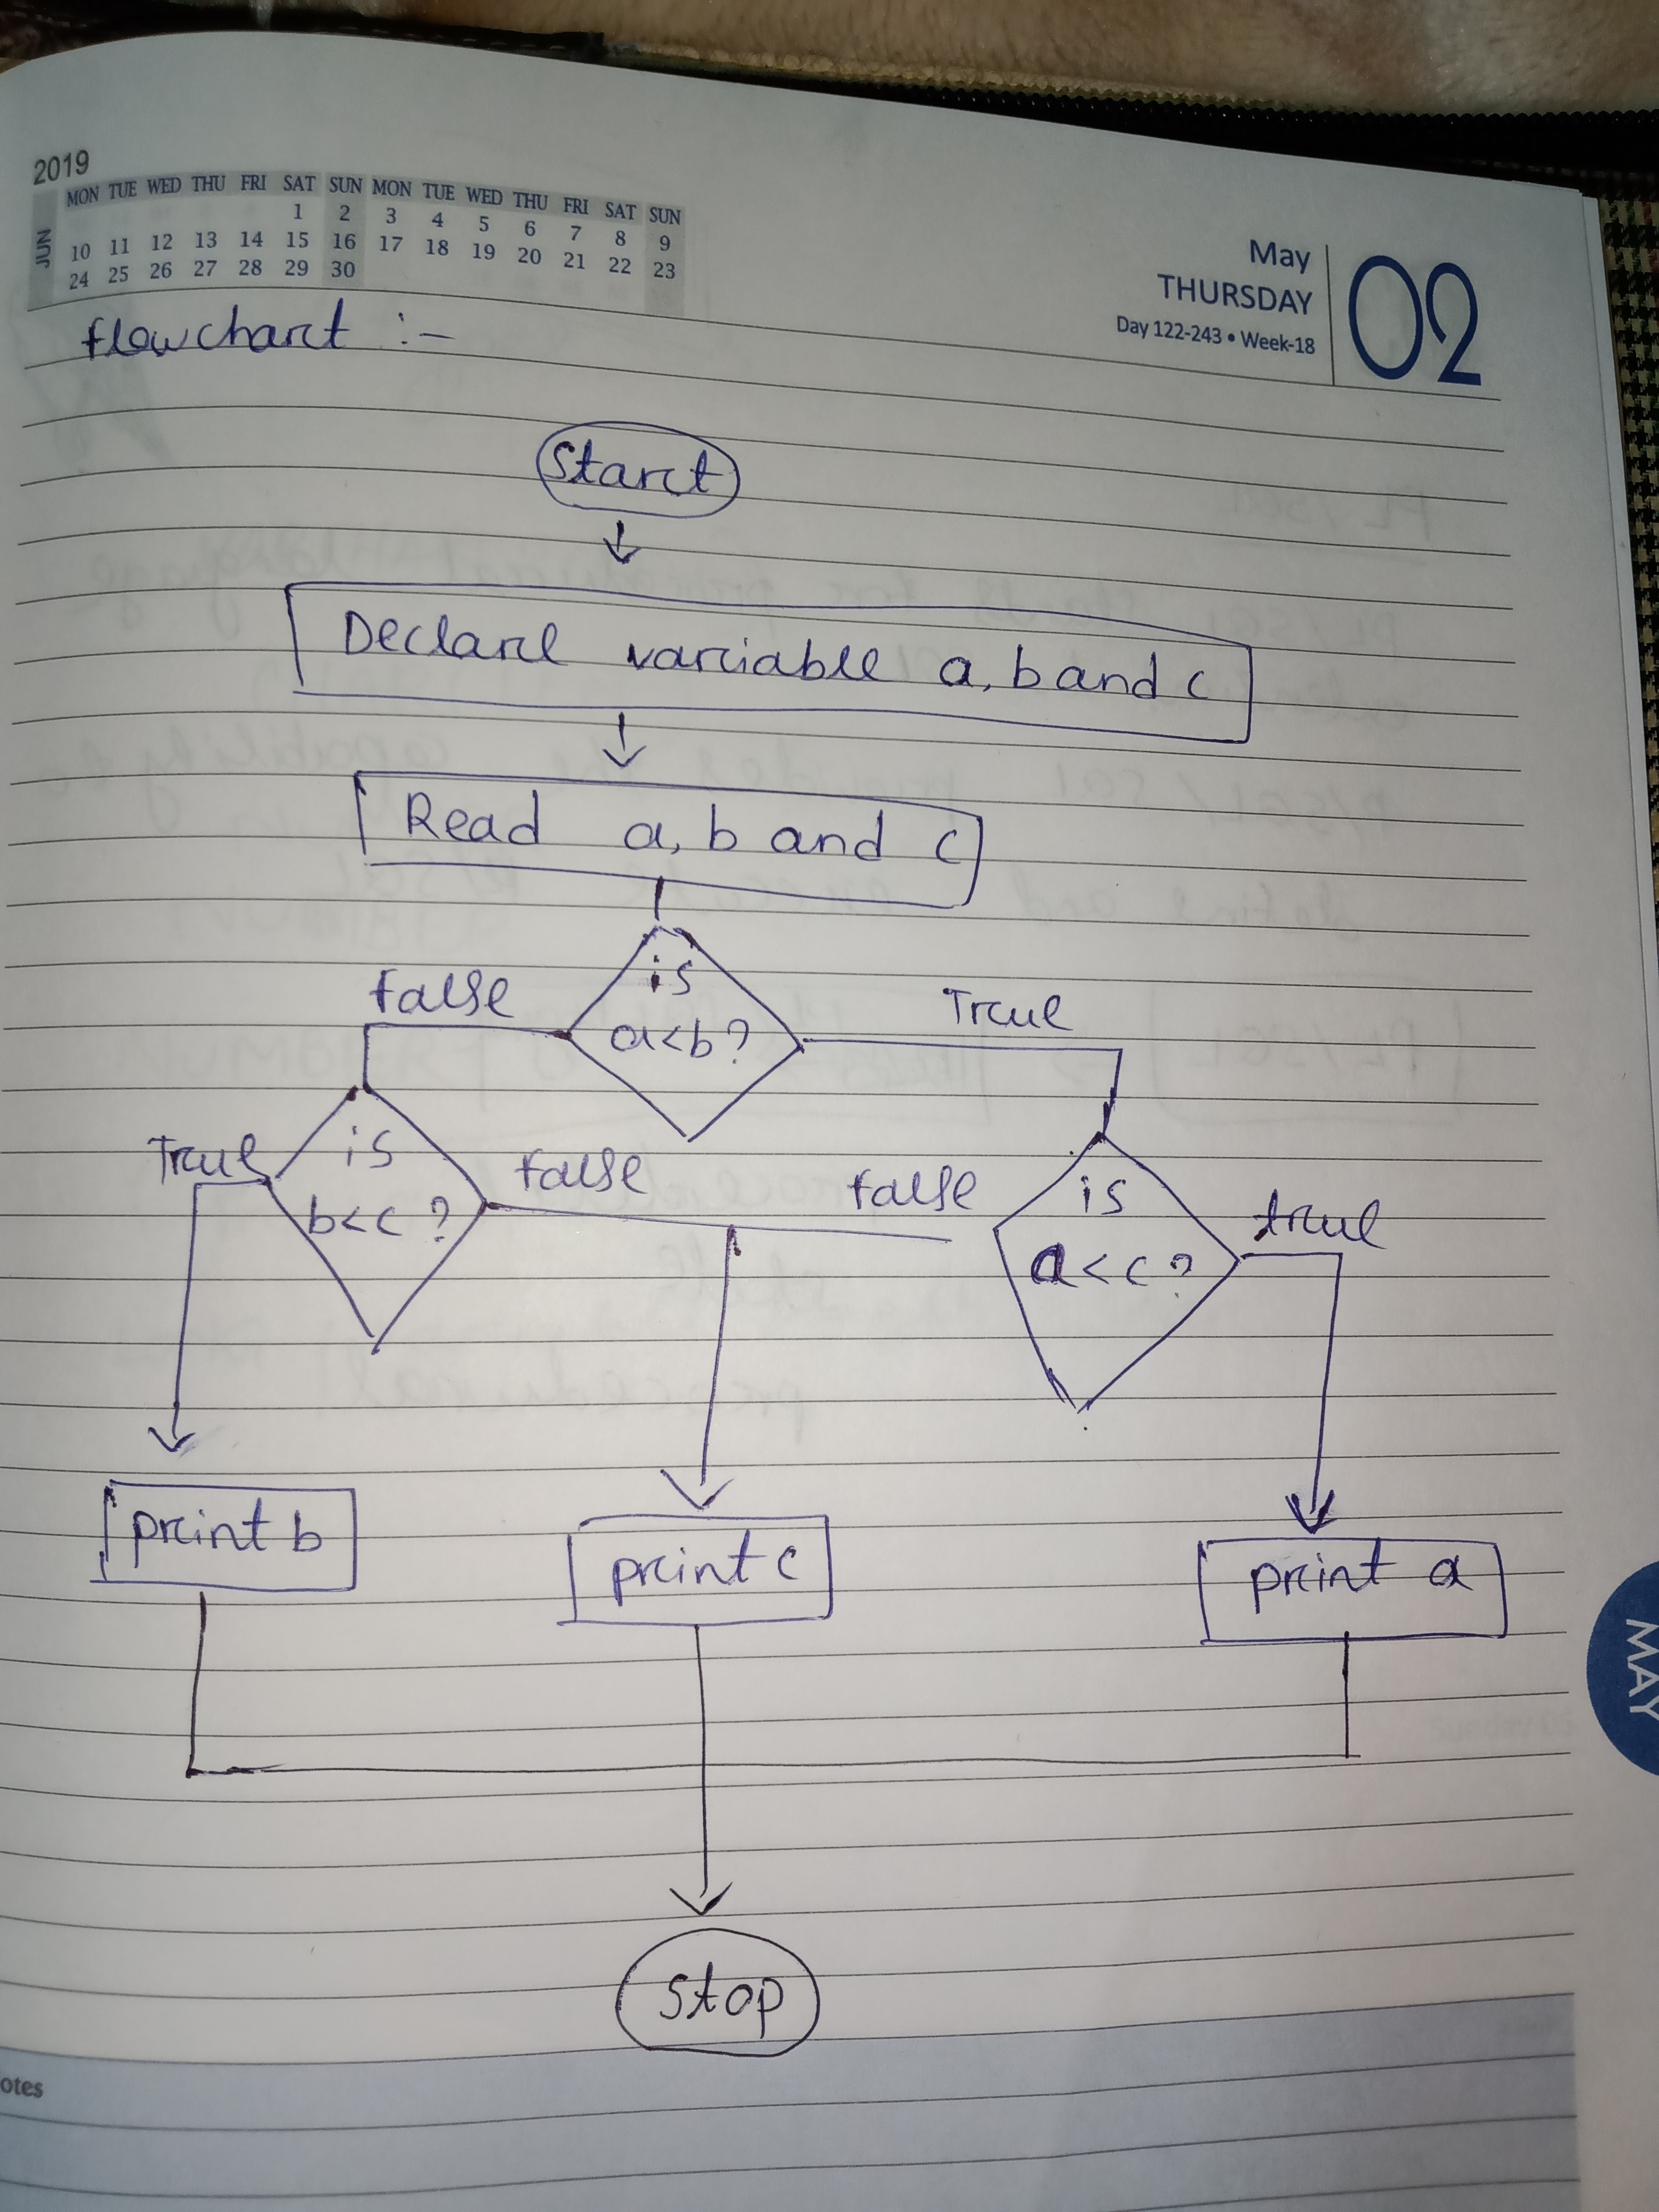 2019
JUN
MON TUE WED THU FRI SAT SUN MON TUE WED THU FRI SAT SUN
1 2 3 4 5 6 7 8 9
10 11 12 13 14 15 16 17 18 19 20 21 22 23
24 25 26 27 28 29 30
May
THURSDAY
Day 122-243 • Week-18
02
flowchart :-
Start
Declare variable a, b and c
Read a, b and c
is
a<b?
false
True
is
b<c?
True
false
false
is
a<c?
true
print b
print c
print a
MAY
Stop
otes